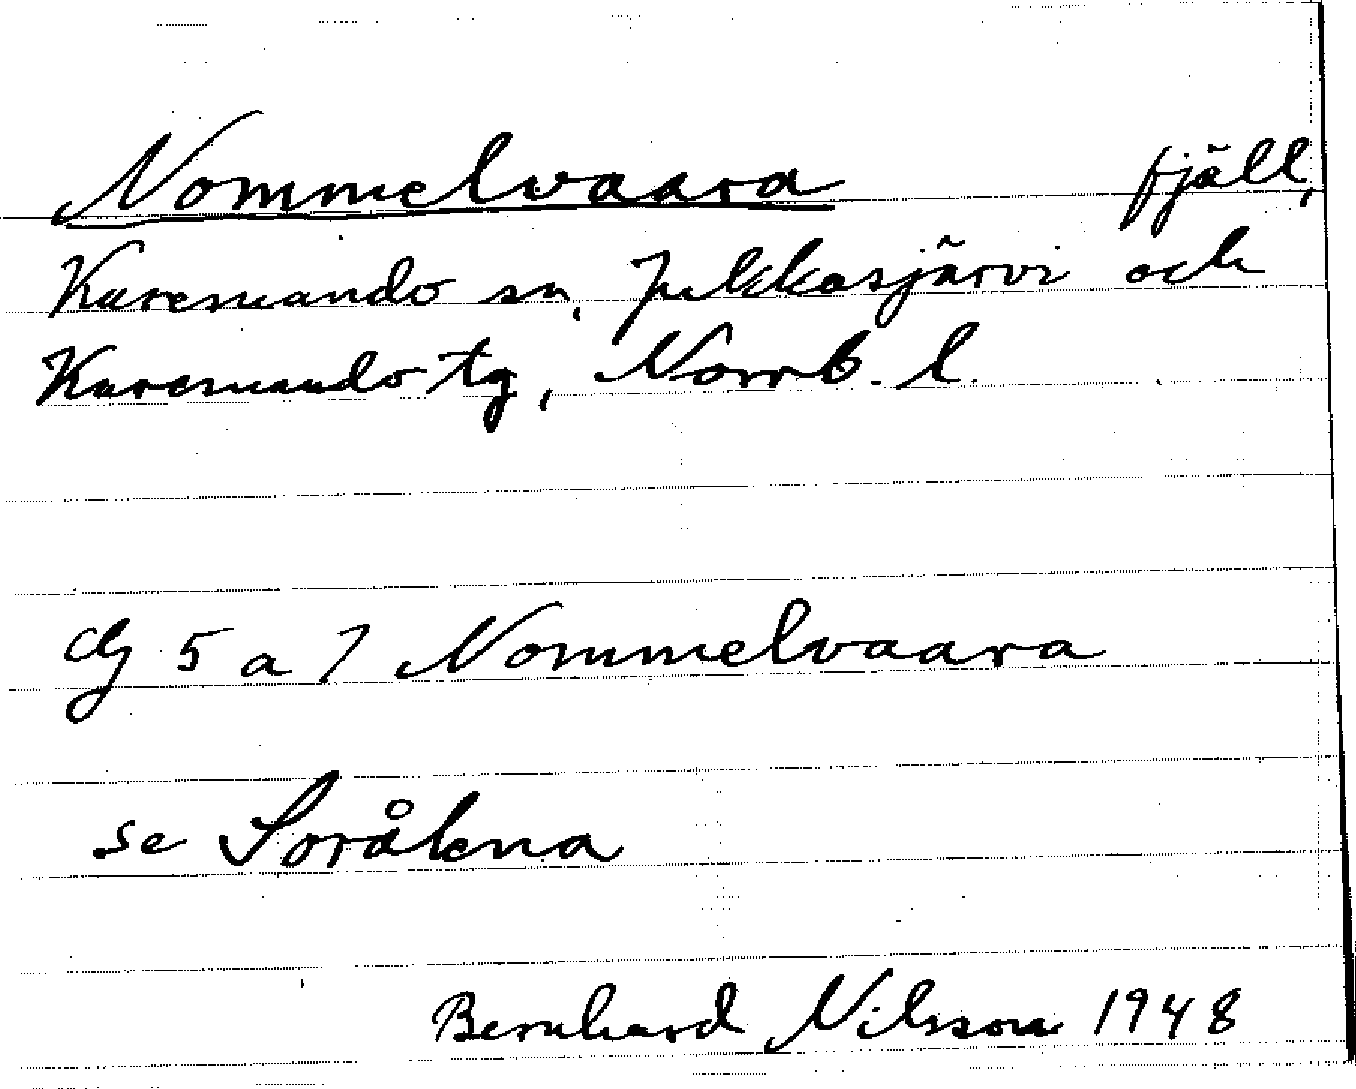 Nommelvaara fjäll,
Karesuando sn, Jukkasjärvi och
Karesuando tg, Norrb. l.
dg 5 a 7 Nommelvaara
se Soråkna
Bernhard Nilsson 1948